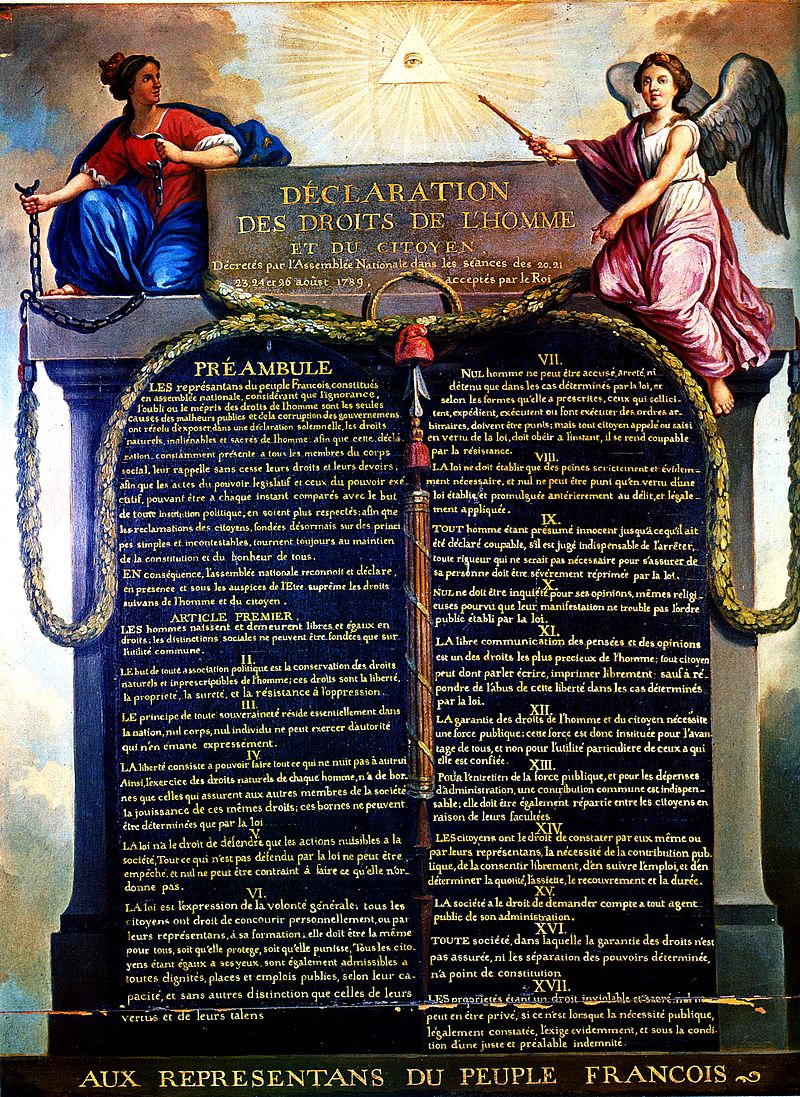 DÉCLARATION
DES DROITS DE L'HOMME
ET DU CITOYEN,
Décretés par l'Assemblée Nationale dans les séances des 20. 21
23. 24 et 26 aoûst 1789, acceptés par le Roi
PRÉAMBULE
LES représantans du peuple Francois, constitués
en assemblée nationale, considérant que l'ignorance,
l'oubli ou le mépris des droits de l'homme sont les seules
causes des malheurs publics et de la corruption des gouvernemens
ont résolu d'exposer, dans une déclaration solemnelle, les droits
naturels, inaliénables et sacrés de l'homme; afin que cette décla
ration, constamment présente a tous les membres du corps
social, leur rappelle sans cesse leurs droits et leurs devoirs,
afin que les actes du pouvoir legislatif et ceux du pouvoir exé
cutif, pouvant être a chaque instant comparés avec le but
de toute institution politique, en soient plus respectés; afin que
les reclamations des citoyens, fondées désormais sur des princi
pes simples et incontestables, tournent toujours au maintien
de la constitution et du bonheur de tous.
EN conséquence, l'assemblée nationale reconnoit et déclare,
en presence et sous les auspices de l'Etre suprême les droits
suivans de l'homme et du citoyen.
ARTICLE PREMIER.
LES hommes naissent et demeurent libres et égaux en
droits; les distinctions sociales ne peuvent être fondées que sur
l'utilité commune.
II.
LE but de toute association politique est la conservation des droits
naturels et inprescriptibles de l'homme; ces droits sont la liberté,
la propriete, la sureté, et la résistance à l'oppression.
III.
LE principe de toute souveraineté réside essentiellement dans
la nation, nul corps, nul individu ne peut exercer d'autorité
qui n'en émane expressement.
IV.
LA liberté consiste a pouvoir faire tout ce qui ne nuit pas à autrui
Ainsi, l'exercice des droits naturels de chaque homme, n'a de bor-
nes que celles qui assurent aux autres membres de la société
la jouissance de ces mêmes droits; ces bornes ne peuvent
être déterminées que par la loi
V.
LA loi n'a le droit de défendre que les actions nuisibles a la
société, Tout ce qui n'est pas défendu par la loi ne peut être
empêché, et nul ne peut être contraint à faire ce qu'elle n'or-
donne pas.
VI.
LA loi est l'expression de la volonté générale; tous les
citoyens ont droit de concourir personnellement, ou par
leurs représentans, à sa formation; elle doit être la même
pour tous, soit qu'elle protege, soit qu'elle punisse, Tous les cito-
yens étant égaux a ses yeux, sont également admissibles a
toutes dignités, places et emplois publics, selon leur ca-
pacité, et sans autres distinction que celles de leurs
vertus et de leurs talens
VII.
NUL homme ne peut être accusé, arreté, ni
détenu que dans les cas déterminés par la loi, et
selon les formes qu'elle a prescrites, ceux qui sollici-
tent, expédient, exécutent ou font exécuter des ordres ar-
bitraires, doivent être punis; mais tout citoyen appelé ou saisi
en vertu de la loi, doit obéir a l'instant, il se rend coupable
par la résistance.
VIII.
LA loi ne doit établir que des peines strictement et évidem-
ment nécessaire, et nul ne peut être puni qu'en vertu d'une
loi établie, et promulguée antérierement au délit, et légale-
ment appliquée.
IX.
TOUT homme étant présumé innocent jusqu'a ce qu'il ait
été déclaré coupable, s'il est jugé indispensable de l'arrêter,
toute rigueur qui ne serait pas nécessaire pour s'assurer de
sa personne doit être sévèrement réprimée par la loi.
X.
NUL ne doit être inquiété pour ses opinions, mêmes religi-
euses pourvu que leur manifestation ne trouble pas l'ordre
public établi par la loi.
XI.
LA libre communication des pensées et des opinions
est un des droits les plus precieux de l'homme; tout citoyen
peut dont parler écrire, imprimer librement; sauf à ré-
pondre de l'abus de cette liberté dans les cas déterminés
par la loi.
XII.
LA garantie des droits de l'homme et du citoyen nécessite
une force publique; cette force est donc instituée pour l'avan-
tage de tous, et non pour l'utilité particuliere de ceux a qui
elle est confiée.
XIII.
POUR l'entretien de la force publique, et pour les dépenses
d'administration, une contribution commune est indispen-
sable; elle doit être également répartie entre les citoyens en
raison de leurs facultées
XIV.
LES citoyens ont le droit de constater par eux même ou
par leurs représentans, la nécessité de la contribution pub-
lique, de la consentir librement, d'en suivre l'emploi, et d'en
déterminer la quotité, l'assiette, le recouvrement et la durée.
XV.
LA société a le droit de demander compte a tout agent
public de son administration.
XVI.
TOUTE société, dans laquelle la garantie des droits n'est
pas assurée, ni les séparation des pouvoirs déterminée,
n'a point de constitution
XVII.
LES propriétés étant un droit inviolable et sacré, nul ne
peut en être privé, si ce n'est lorsque la nécessité publique,
légalement constatée, l'exige evidemment, et sous la condi-
tion d'une juste et préalable indemnité.
AUX REPRESENTANS DU PEUPLE FRANCOIS